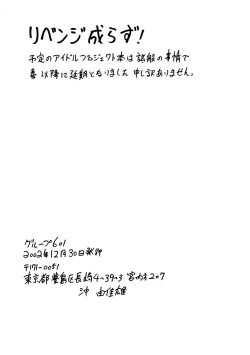 リベンジ成らず!
予定のアイドルプロジェクト本は諸般の事情で
春以降に延期となりました 申し訳ありません。
グループ601
2002年12月30日発行
〒171-0051
東京都豊島区長崎4-39-3 宮崎方207
沖 由佳雄